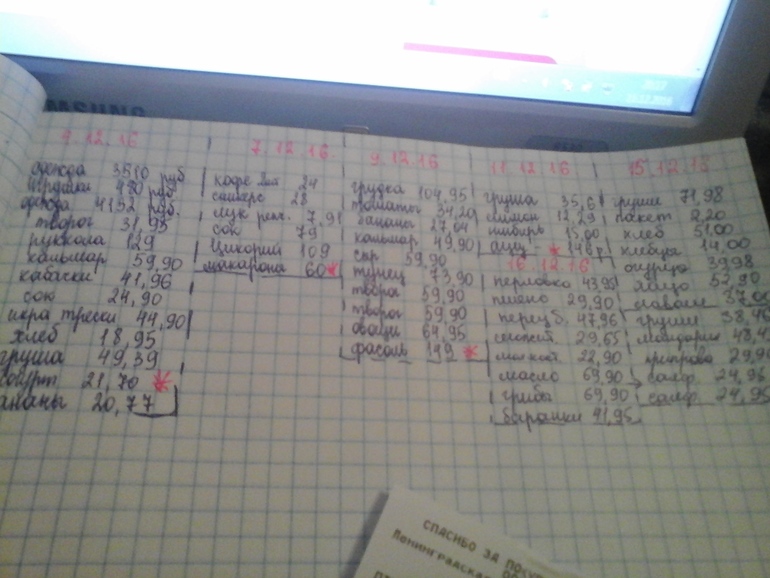 SAMSUNG
9.12.16
одежда 3510 руб
490 руб
одежда 4192 руб.
творог 31,95
руккола 129
кальмар 59,90
кабаски 41,96
сок 24,90
икра трески 44,90
хлеб 18,95
груша 49,39
21,70
ананы 20,77
7.12.16.
кофе 24
сникерс 28
лук реп. 7,91
сок 79
цикорий 109
макароны 60
9.12.16
грудка 104,95
томаты 34,20
бананы 27,04
кальмар 49,90
сыр 59,90
73,90
творог 59,90
творог 59,90
овощи 64,95
фасоль 149
11.12.16
груша 35,61
лимон 12,29
имбирь 15,00
146 р.
16.12.16
перловка 43,95
пшено 29,90
перец б. 47,96
29,65
22,90
масло 69,90
грибы 69,90
баранки 41,95
15.12.15
груши 71,98
пакет 2,20
хлеб 51,00
хлебцы 14,00
огурцы 39,98
яйцо 52,90
груши 38,46
мандарин
салф. 24,95
салф. 24,95
СПАСИБО ЗА
Ленинградская